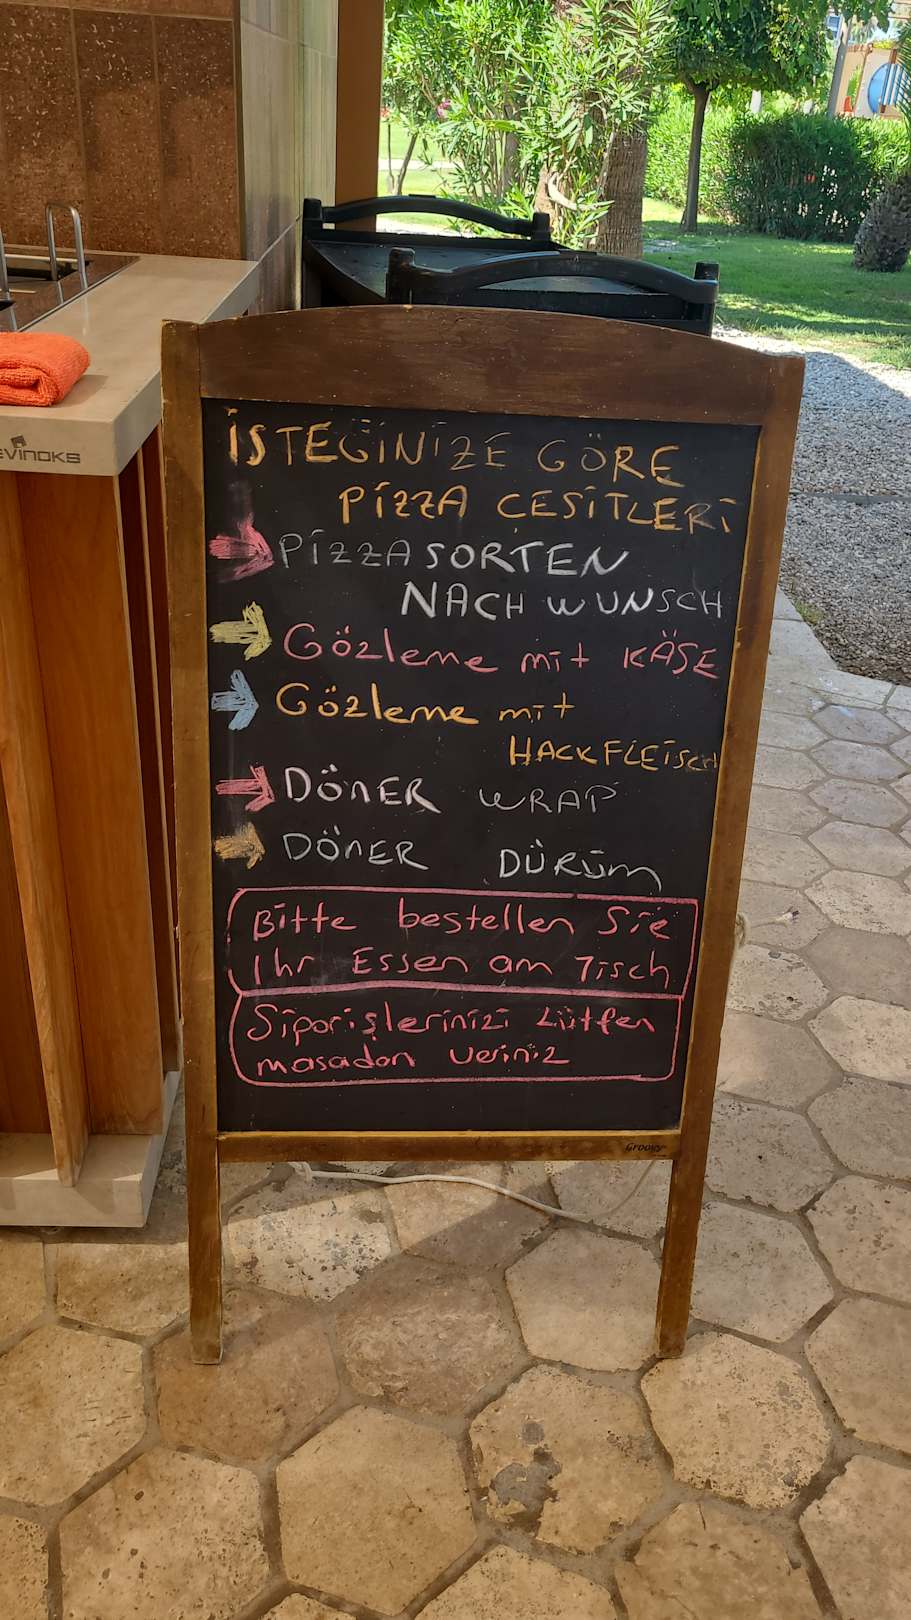 evinoks
İSTEĞİNİZE GÖRE
PİZZA ÇESİTLERİ
PİZZASORTEN
NACH WUNSCH
Gözleme mit KÄSE
Gözleme mit
HACKFLEISCH
DÖNER WRAP
DÖNER DÜRÜM
Bitte bestellen Sie
Ihr Essen am Tisch
Siparişlerinizi Lütfen
masadan veriniz
Groovy